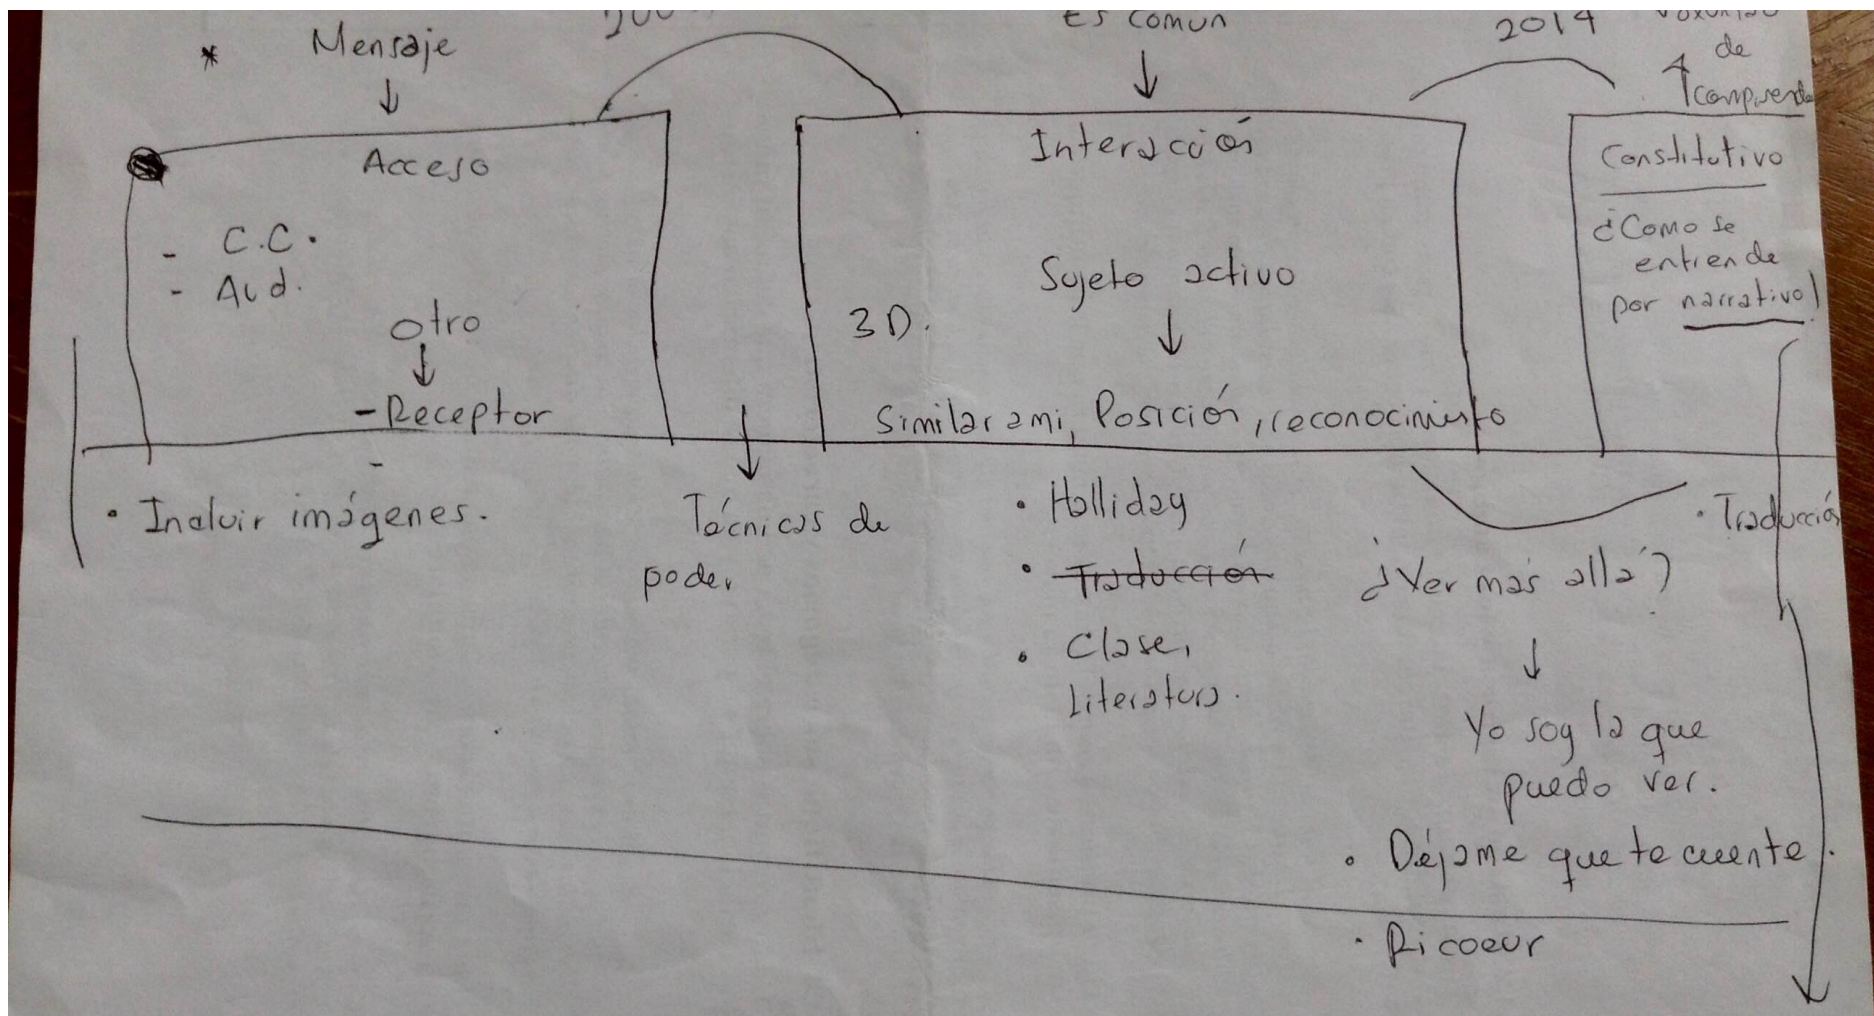 * Mensaje
Acceso
- C.C.
- Aud.
Otro
- Receptor
• Incluir imágenes.
Técnicas de
poder
Es común
Interacción
Sujeto activo
3D.
Similar a mi, Posición, reconocimiento
• Halliday
• Traducción
• Clase,
Literatura.
2014
de
comprender
Constitutivo
¿Como se
entiende
por narrativo?
• Traducción
¿Ver más allá?
Yo soy la que
puedo ver.
• Déjame que te cuente.
• Ricoeur